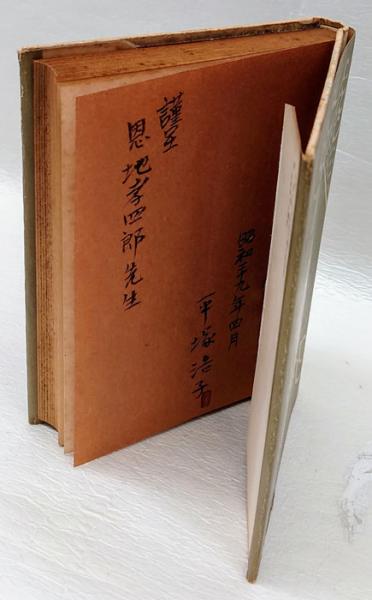 昭和二十九年四月
平塚浩子
謹呈
恩地孝四郎先生